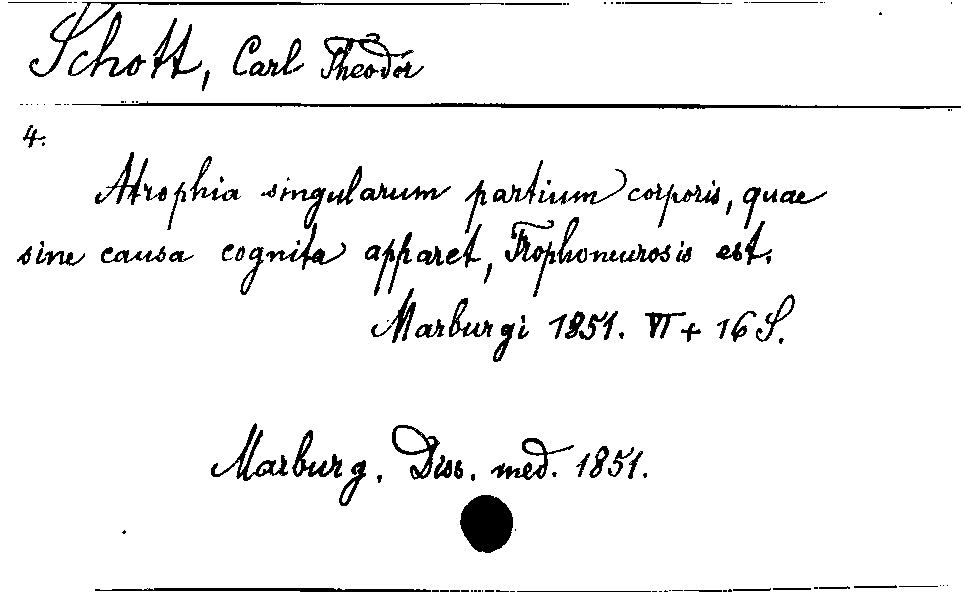 Schott, Carl Theodor
4.
Atrophia singularum partium corporis, quae
sine causa cognita apparet, Trophoneurosis est.
Marburgi 1851. VI + 16 S.
Marburg, Diss. med. 1851.